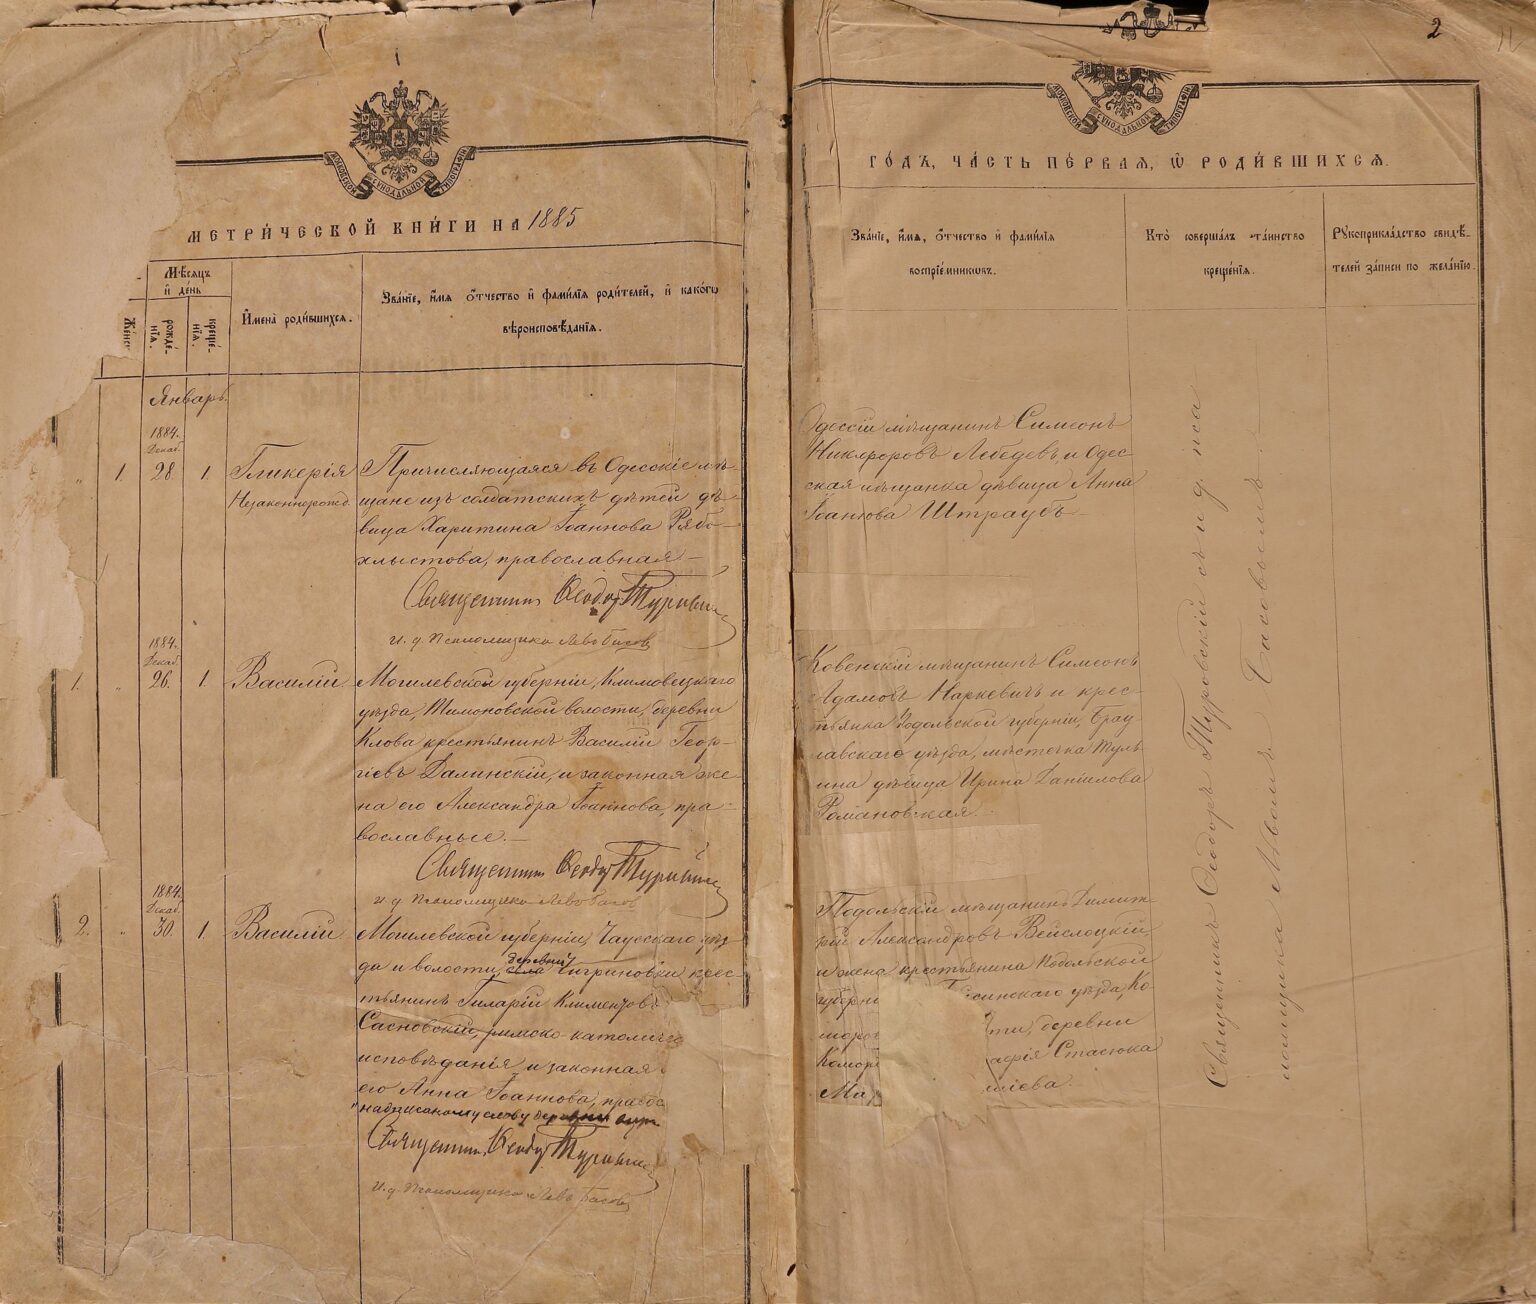 МОСКОВСКОЙ СѴНОДАЛЬНОЙ ТИПОГРАФІИ
МЕТРИ́ЧЕСКОЙ КНИ́ГИ НА 1885
Мѣсяцъ
и҆ де́нь
Же́нск
рожде́-
нїѧ.
креще́-
нїѧ.
И҆мена̀ роди́вшихсѧ.
Зва́нїе, и҆́мѧ ѻ҆́тчество и҆ фами́лїѧ роди́телей, и҆ како́гѡ
вѣроисповѣ́данїѧ.
Январь.
1884.
Декаб.
„ 1. 28. 1.
Гликерія
Незаконнорожд.
Причисляющаяся въ Одесскіе мѣ-
щане изъ солдатскихъ дѣтей дѣ-
вица Харитина Іоаннова Рябо-
хлыстова, православная —
Священникъ Ѳеодоръ Туровскій
и. д. псаломщика Левъ Басовъ
1884.
Декаб.
1. „ 26. 1.
Василій.
Могилевской губерніи, Климовецкаго
уѣзда, Тимоновской волости, деревни
Клова крестьянинъ Василій Геор-
гіевъ Далинскій, и законная же-
на его Александра Іоаннова, пра-
вославные. —
Священникъ Ѳеодоръ Туровскій
и. д. Псаломщика Левъ Басовъ
1884.
Декаб.
2. „ 30. 1.
Василій
Могилевской губерніи, Чаусскаго уѣз-
да и волости, деревни
села Тигриновки крес-
тьянинъ Гиларій Климентовъ
Сасновскій, римско-католичес
исповѣданія и законная
его Анна Іоаннова, правос
надписаному слову деревни вѣрить
Священникъ Ѳеодоръ Туровскій
и. д. Псаломщика Левъ Басовъ
2
МОСКОВСКОЙ СѴНОДАЛЬНОЙ ТИПОГРАФІИ
ГО́ДЪ, ЧА́СТЬ ПЕ́РВАѦ, Ѡ҆ РОДИ́ВШИХСѦ.
Зва́нїе, и҆́мѧ, ѻ҆́тчество и҆ фами́лїѧ
воспрїе́мникѡвъ.
Кто̀ соверша́лъ та́инство
креще́нїѧ.
Рꙋкоприкла́дство свидѣ́-
телей за́писи по жела́нїю.
Одесскій мѣщанинъ Симеонъ
Никифоровъ Лебедевъ, и Одес-
ская мѣщанка дѣвица Анна
Іоаннова Штраубъ —
Ковенскій мѣщанинъ Симеонъ
Адамовъ Наркевичъ и крес-
тьянка Подольской губерніи, Брац-
лавскаго уѣзда, мѣстечка Туль-
чина дѣвица Ирина Даніилова
Романовская. —
Подольскій мѣщанинъ Димит-
рій Александровъ Вейслоцкій
и жена крестьянина Подольской
губерні синскаго уѣзда, Ко-
маров сти, деревни
Комар афія Стасюка
Ма шіева.
Священникъ Ѳеодоръ Туровскій съ и д. пса
ломщика Львомъ Басовымъ